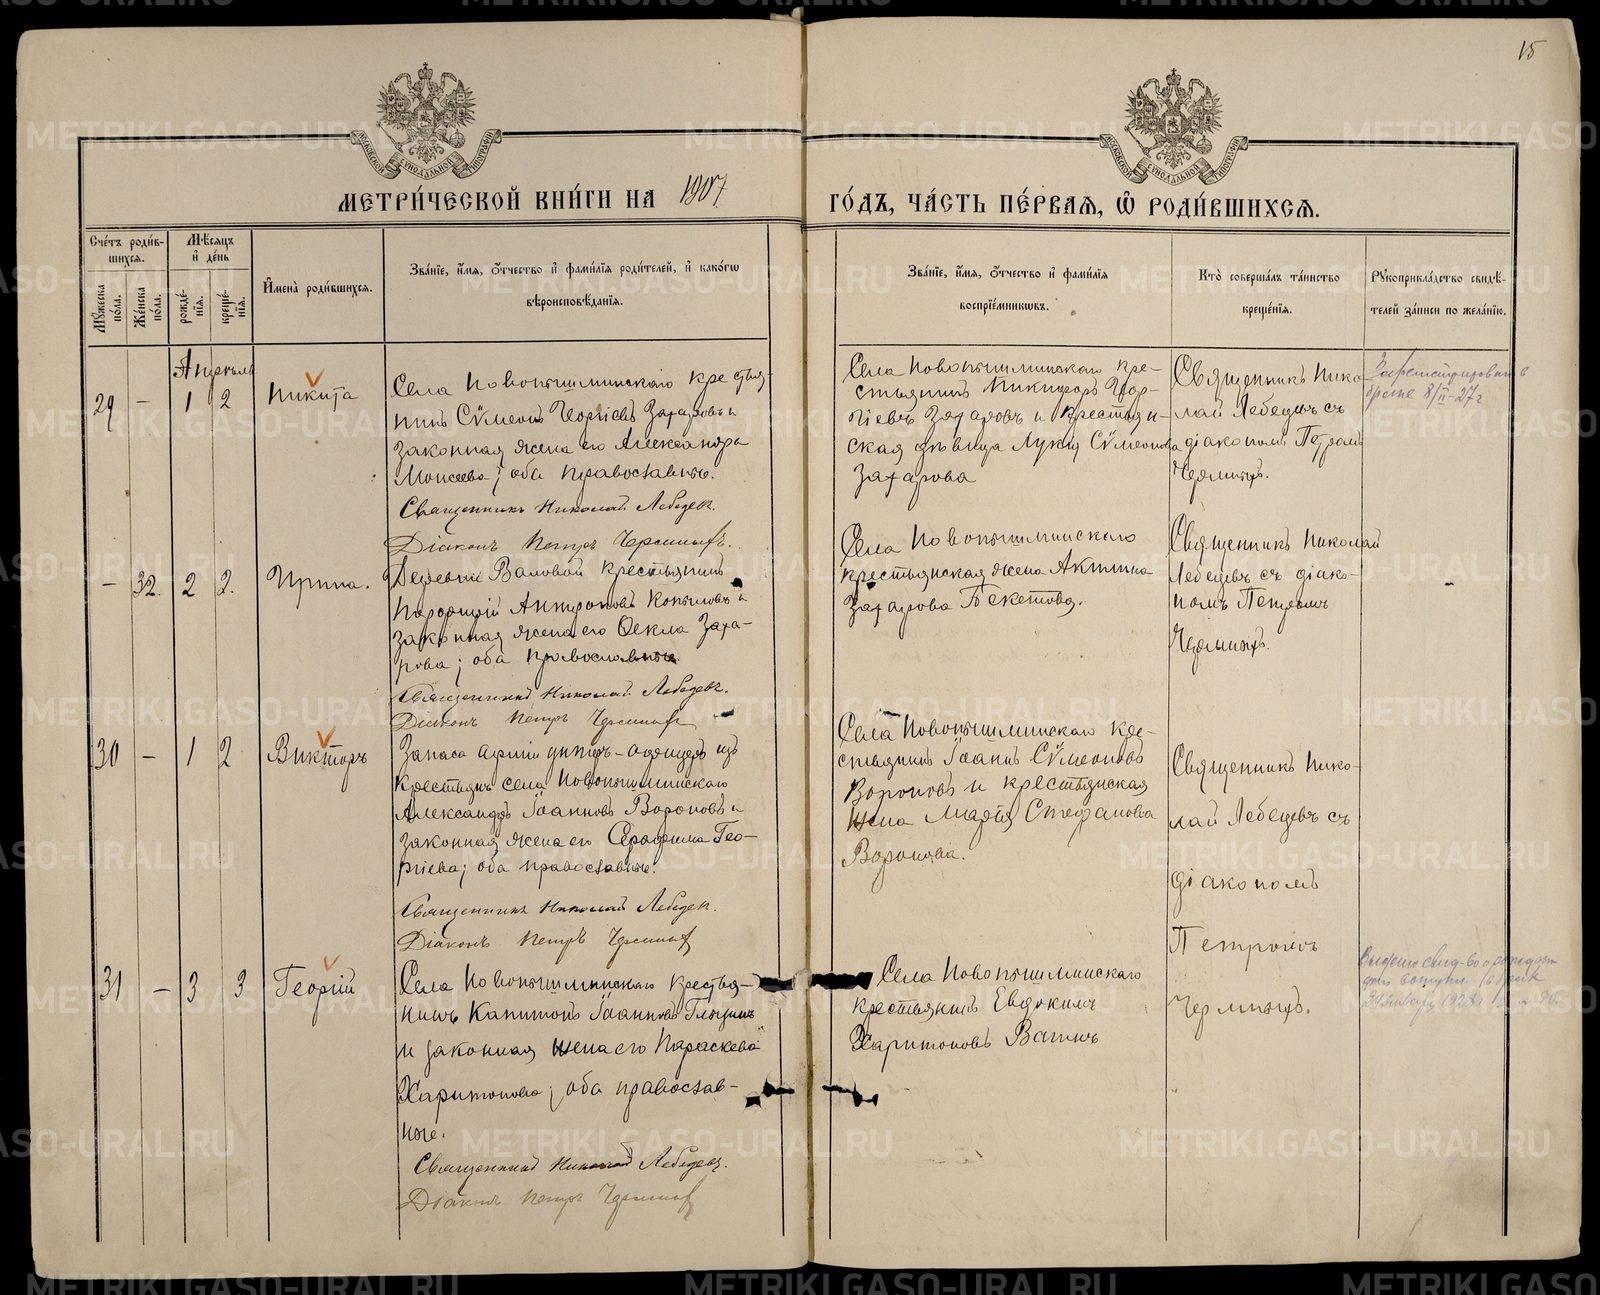 15
МЕТРИ́ЧЕСКОЙ КНИ́ГИ НА 1907 ГО́ДЪ, ЧА́СТЬ ПЕ́РВАЯ, Ѡ РОДИ́ВШИХСЯ.
Сче́тъ роди́в-
шихся.
Мѣ́сяцъ
и҆ де́нь
Мꙋ́жеска
по́ла.
Же́нска
по́ла.
рожде́-
нїя.
креще́-
нїя.
И҆мена̀ роди́вшихся.
Зва́нїе, и҆́мя, ѻ҆́тчество и҆ фами́лїя роди́телей, и҆ како́гѡ
вѣроисповѣ́данїя.
Зва́нїе, и҆́мя, ѻ҆́тчество и҆ фами́лїя
воспрїе́мникѡвъ.
Кто̀ соверша́лъ та́инство
креще́нїя.
Рꙋкоприкла́дство свидѣ́-
телей за́писи по жела́нїю.
Апрѣль
29 — 1 2
Никита
Села Новопышминскаго кресть-
нинъ Сѵмеонъ Георгіевъ Захаровъ и
законная жена его Александра
Моисеева; оба православные.
Священникъ Николай Лебедевъ.
Діаконъ Петръ
Села Новопышминскаго кре-
стьянинъ Никифоръ Геор-
гіевъ Захаровъ и крестьян-
ская дѣвица Лукія Сѵмеонова
Захарова
Священникъ Нико-
лай Лебедевъ съ
діакономъ Петромъ
8/II-27 г
— 32. 2 2.
Ирина.
Деревни Валовой крестьянинъ
Антроповъ Копыловъ и
законная жена его Ѳекла Заха-
рова; оба православные.
Священникъ Николай Лебедевъ.
Діаконъ Петръ
Села Новопышминскаго
крестьянская жена Акилина
Захарова Бекетова.
Священникъ Николай
Лебедевъ съ діако-
номъ Петромъ
30 — 1 2
Викторъ
Запаса арміи унтеръ-офицеръ изъ
крестьянъ села Новопышминскаго
Александръ Іоанновъ Вороновъ и
законная жена его Серафима Гео-
ргіева; оба православные.
Священникъ Николай Лебедевъ.
Діаконъ Петръ
Села Новопышминскаго кре-
стьянинъ Іоаннъ Сѵмеоновъ
Вороновъ и крестьянская
жена Марія Стефанова
Воронова.
Священникъ Нико-
лай Лебедевъ съ
діакономъ
Петромъ
31 — 3 3
Георгій
Села Новопышминскаго кресть-
нинъ Капитонъ Іоанновъ
и законная жена его Параскева
Харитонова; оба православ-
ные.
Священникъ Николай Лебедевъ.
Діаконъ Петръ
Села Новопышминскаго
крестьянинъ Евдокимъ
Харитоновъ Вагинъ
METRIKI.GASO-URAL.RU